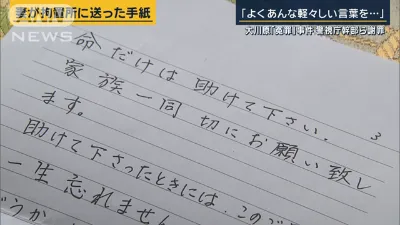 妻が拘置所に送った手紙
ANN
NEWS
「よくあんな軽々しい言葉を…」
大川原「冤罪」事件 警視庁幹部ら謝罪
命だけは助けて下さい。
3
家族一同切にお願い致し
ます。
助けて下さったときには、このご
一生忘れません
どうか